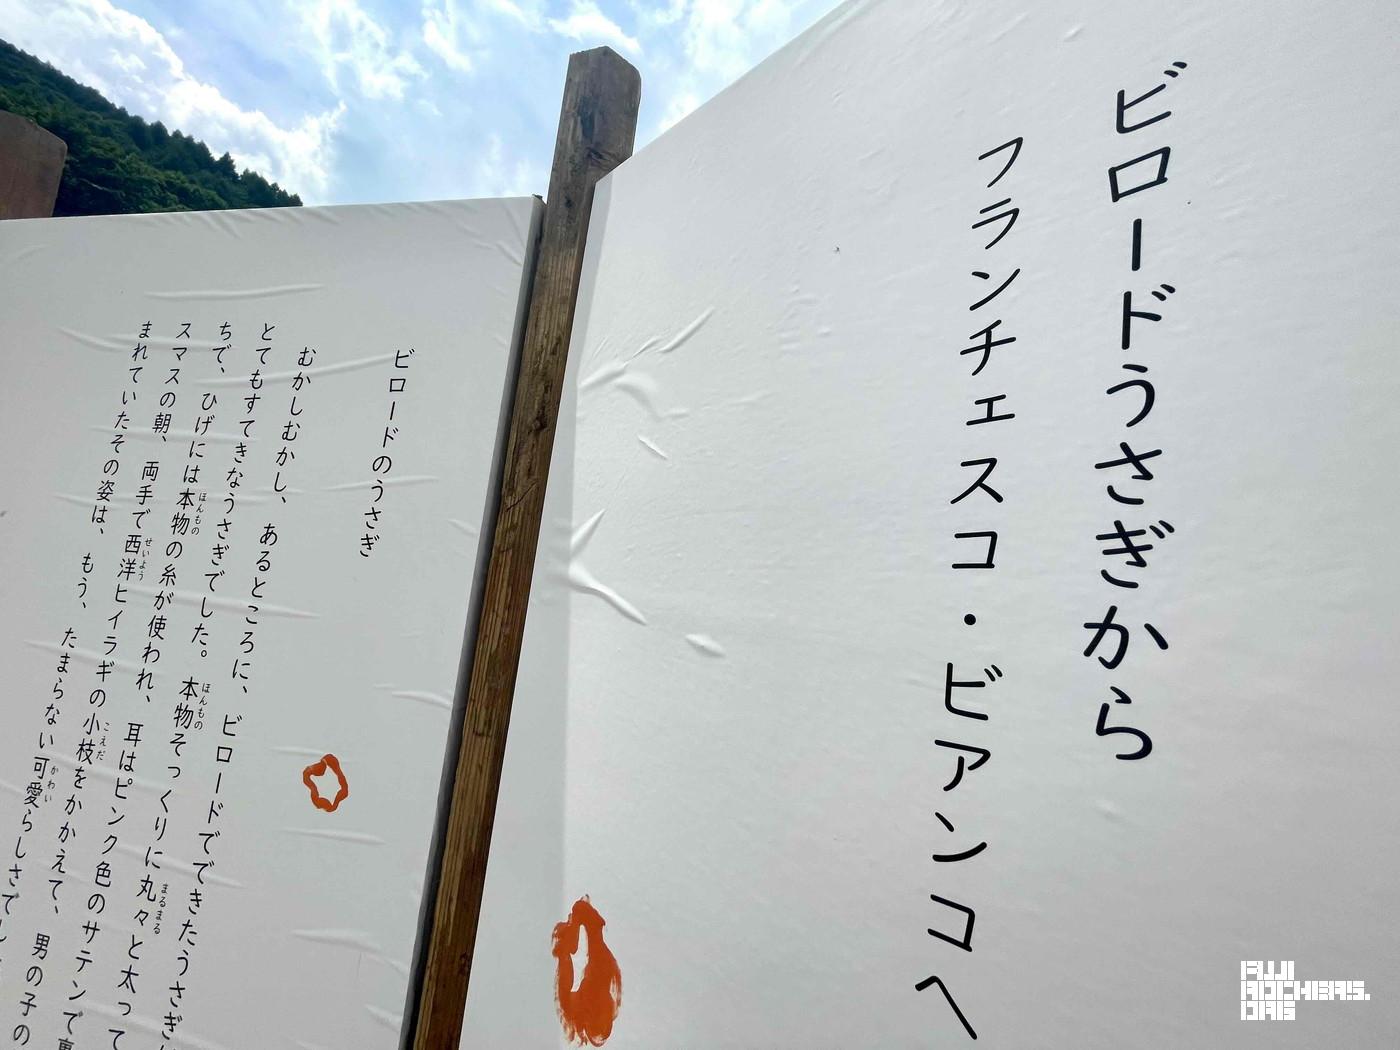 ビロードうさぎから
フランチェスコ・ビアンコへ
ビロードのうさぎ
むかしむかし、あるところに、ビロードでできたうさぎ
とてもすてきなうさぎでした。本物ほんものそっくりに丸々まるまると太って
ちで、ひげには本物ほんものの糸が使われ、耳はピンク色のサテンで
スマスの朝、両手で西洋せいようヒイラギの小枝こえだをかかえて、男の子の
まれていたその姿は、もう、たまらない可愛かわいらしさで
FUJI
ROCKERS.
ORG